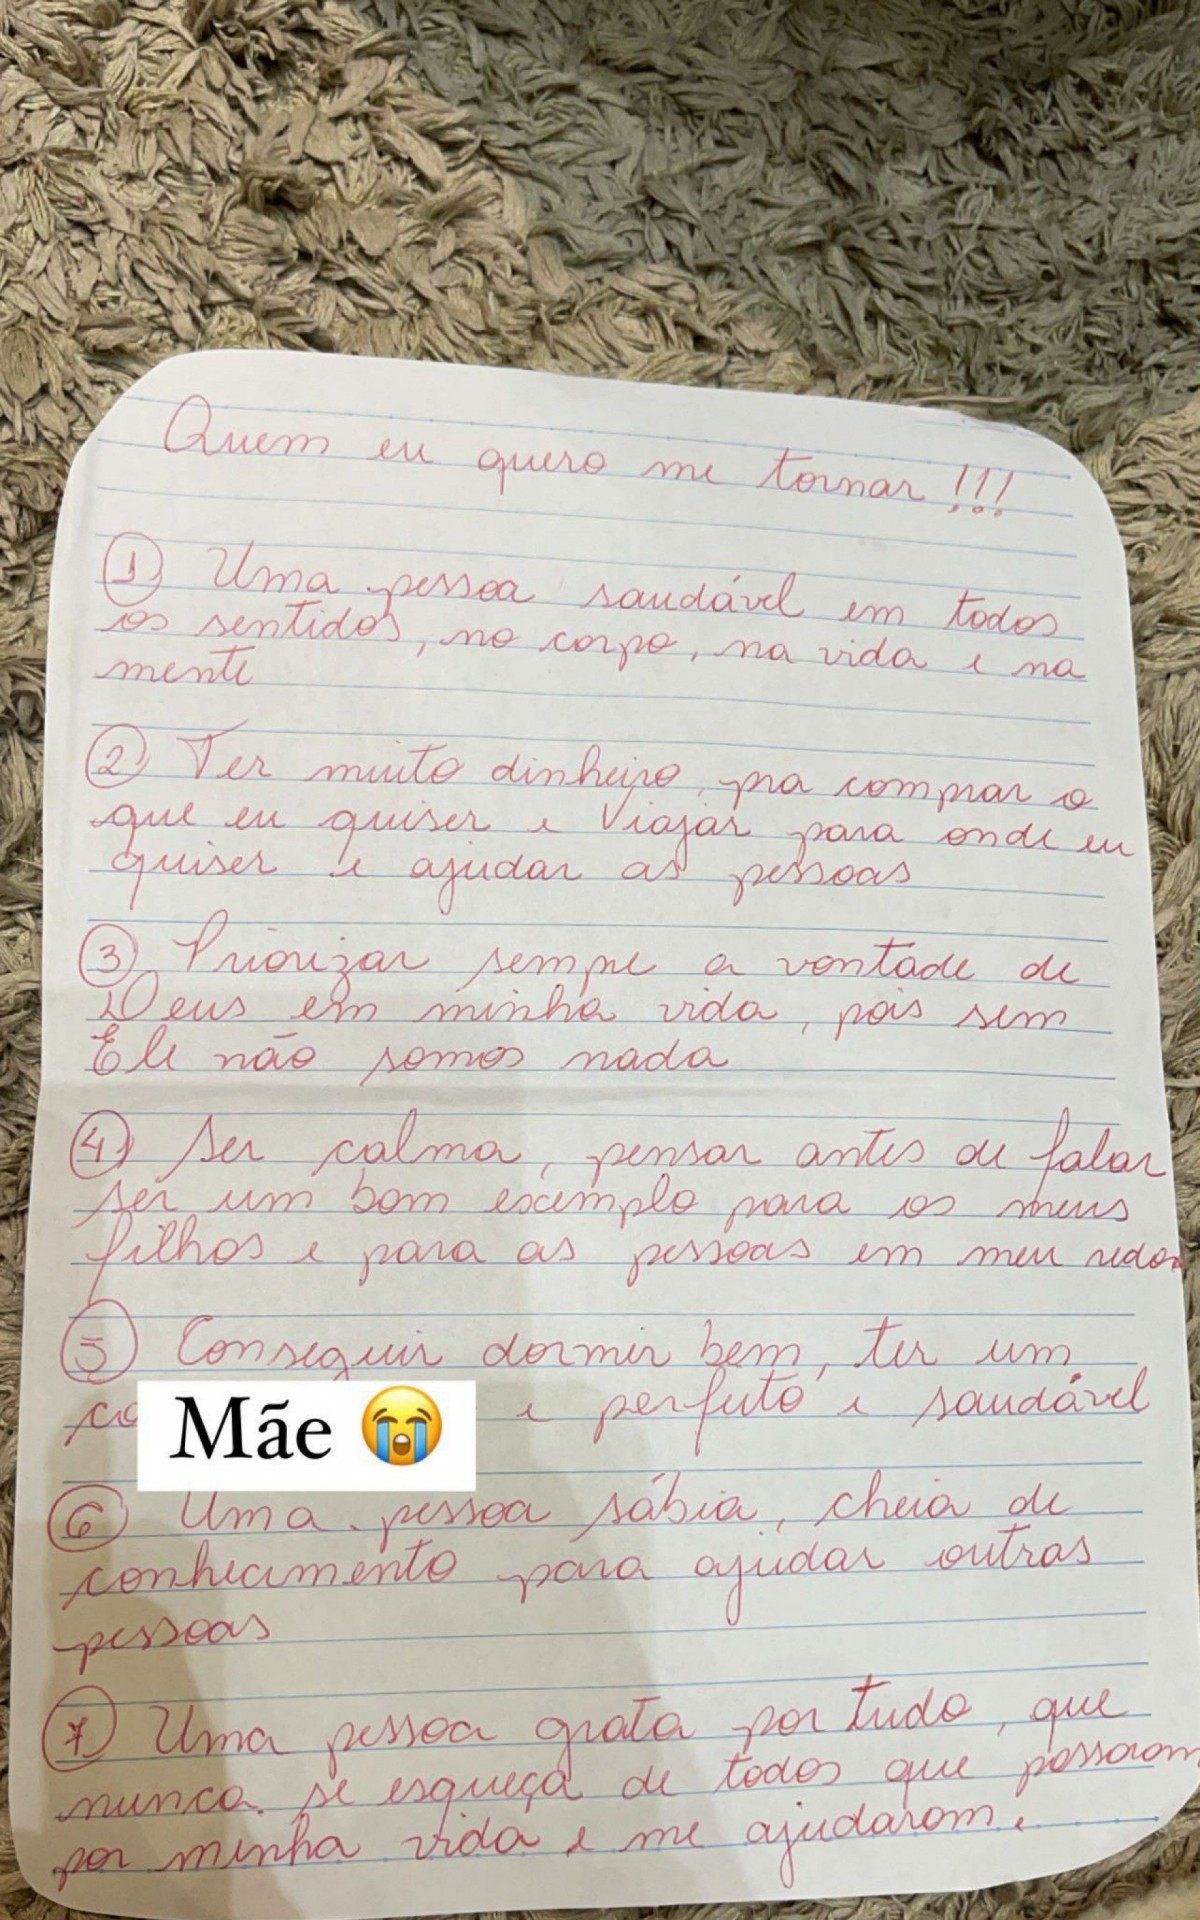 Quem eu quero me tornar!!!
① Uma pessoa saudável em todos
os sentidos, no corpo, na vida e na
mente
② Ter muito dinheiro, pra comprar o
que eu quiser e Viajar para onde eu
quiser e ajudar as pessoas
③ Priorizar sempre a vontade de
Deus em minha vida, pois sem
Ele não somos nada
④ Ser calma, pensar antes de falar
ser um bom exemplo para os meus
filhos e para as pessoas em meu redor
⑤ Conseguir dormir bem, ter um
Mãe 😭 e perfeito e saudável
⑥ Uma pessoa sábia, cheia de
conhecimento para ajudar outras
pessoas
⑦ Uma pessoa grata por tudo, que
nunca se esqueça de todos que passaram
por minha vida e me ajudaram.